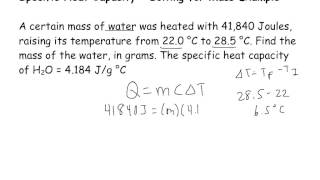 Specific Heat Capacity - Solving for Mass Example
A certain mass of water was heated with 41,840 Joules,
raising its temperature from 22.0 °C to 28.5 °C. Find the
mass of the water, in grams. The specific heat capacity
of H₂O = 4.184 J/g °C
ΔT = TF - TI
Q = mCΔT
28.5 - 22
41840J = (m)(4.1
6.5°C